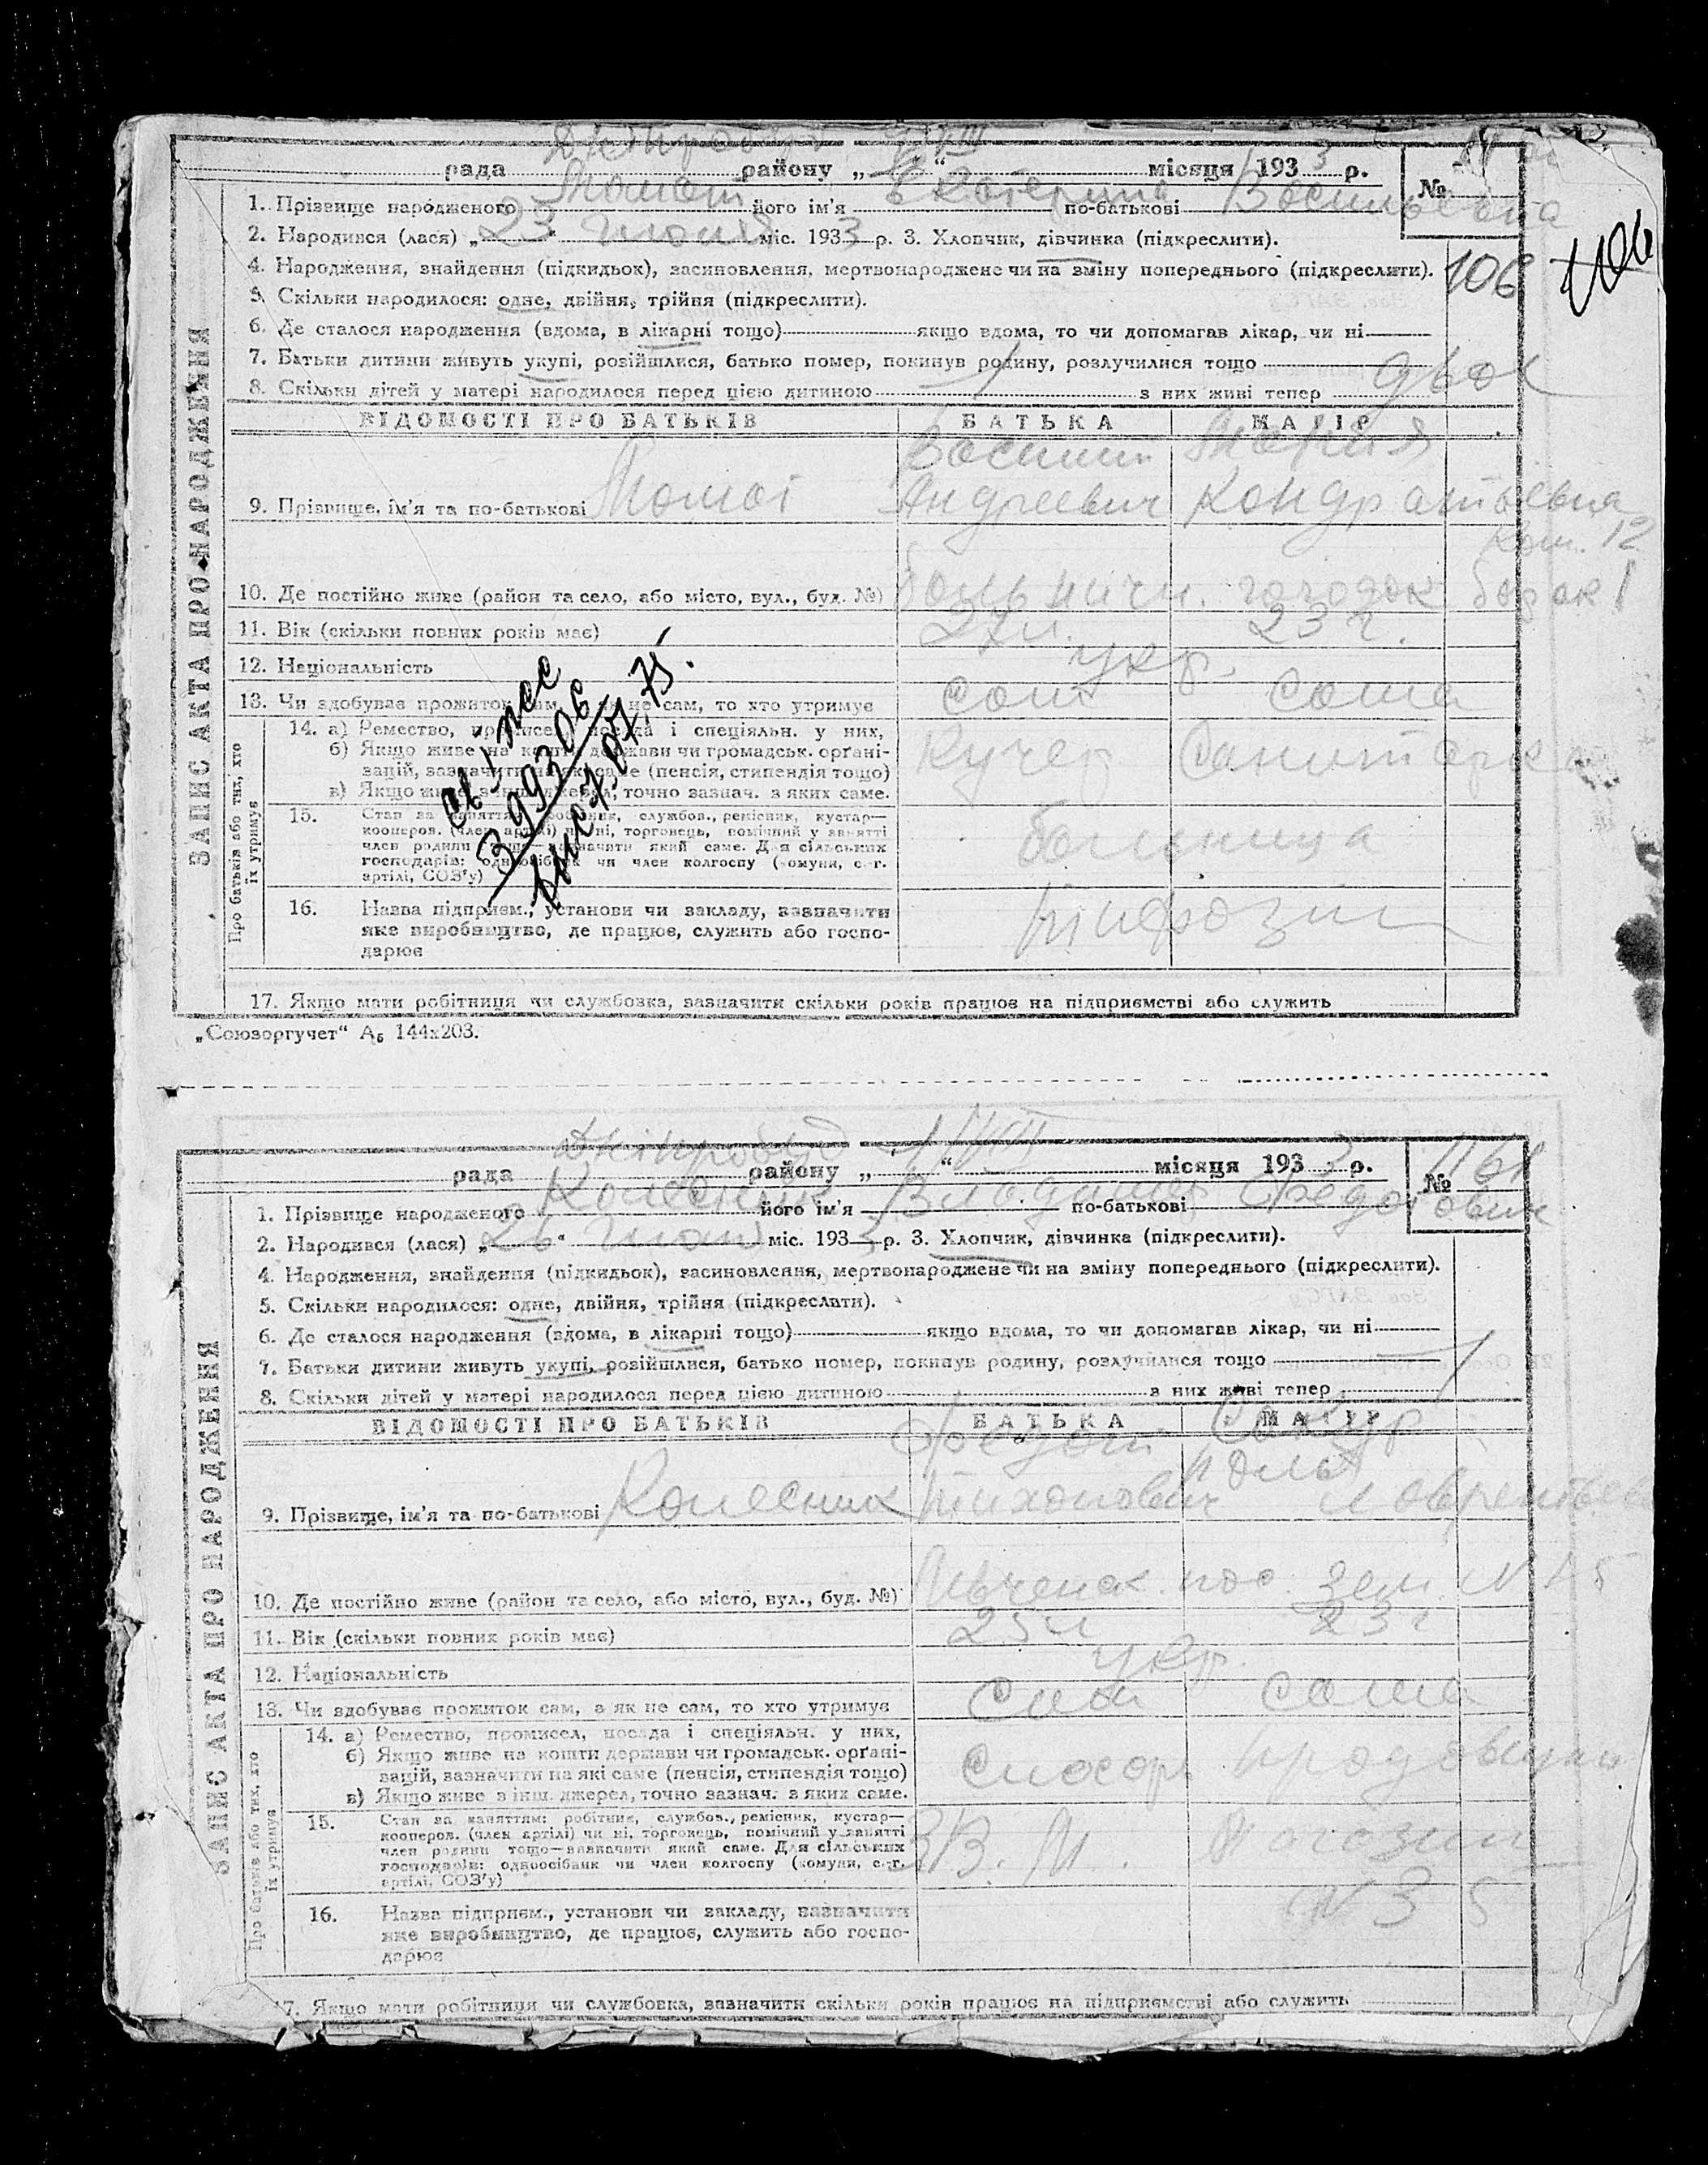 рада района „ “ місяця 1933 р. №
1. Прізвище народженого його ім'я Екатерина по-батькові Васильевна
2. Народився (лася) „23“ июня міс. 1933 р. 3. Хлопчик, дівчинка (підкреслити).
4. Народження, знайдення (підкидьок), засиновлення, мертвонароджене чи на зміну попереднього (підкреслити). 106
5. Скільки народилося: одне, двійня, трійня (підкреслити).
6. Де сталося народження (вдома, в лікарні тощо) якщо вдома, то чи допомагав лікар, чи ні
7. Батьки дитини живуть укупі, розійшлися, батько помер, покинув родину, розлучилися тощо
8. Скільки дітей у матері народилося перед цією дитиною з них живі тепер двое
ВІДОМОСТІ ПРО БАТЬКІВ БАТЬКА МАТІР
Василий Мария
9. Прізвище, ім'я та по-батькові Андреевич Кондратьевна
Ком. 12
10. Де постійно живе (район та село, або місто, вул., буд. №) больничн. городок барак 1
11. Вік (скільки повних років має) 27 л. 23 г.
12. Національність укр.
13. Чи здобуває прожиток сам, а як не сам, то хто утримує сам сама
ЗАПИС АКТА ПРО НАРОДЖЕННЯ
Про батьків або тих, хто
їх утримує
14. а) Ремество, промисел, посада і спеціяльн. у них,
б) Якщо живе на кошти держави чи громадськ. орґані-
зацій, зазначити на які саме (пенсія, стипендія тощо)
в) Якщо живе з інш. джерел, точно зазнач. з яких саме.
Кучер Санитарка
15. Стан за заняттям: робітник, службов., ремісник, кустар—
кооперов. (член артілі) чи ні, торговець, помічний у занятті
член родини тощо—зазначити який саме. Для сільських
господарів: одноосібник чи член колгоспу (комуни, с.-г.
артілі, СОЗ'у)
больница
16. Назва підприєм., установи чи закладу, зазначити
яке виробництво, де працює, служить або госпо-
дарює
17. Якщо мати робітниця чи службовка, зазначити скільки років працює на підприємстві або служить
„Союзоргучет“ А5 144x203.
рада району „1“ місяця 1933 р. №
1. Прізвище народженого Колесник його ім'я Владимир по-батькові Федотович
2. Народився (лася) „26“ міс. 1933 р. 3. Хлопчик, дівчинка (підкреслити).
4. Народження, знайдення (підкидьок), засиновлення, мертвонароджене чи на зміну попереднього (підкреслити).
5. Скільки народилося: одне, двійня, трійня (підкреслити).
6. Де сталося народження (вдома, в лікарні тощо) якщо вдома, то чи допомагав лікар, чи ні
7. Батьки дитини живуть укупі, розійшлися, батько помер, покинув родину, розлучилися тощо
8. Скільки дітей у матері народилося перед цією дитиною з них живі тепер
ВІДОМОСТІ ПРО БАТЬКІВ БАТЬКА МАТІР
Федот
9. Прізвище, ім'я та по-батькові Колесник Тихонович
10. Де постійно живе (район та село, або місто, вул., буд. №) пос. Зем.
11. Вік (скільки повних років має) 25 л 23 г
12. Національність укр.
13. Чи здобуває прожиток сам, а як не сам, то хто утримує Сам Сама
ЗАПИС АКТА ПРО НАРОДЖЕННЯ
Про батьків або тих, хто
їх утримує
14. а) Ремество, промисел, посада і спеціяльн. у них,
б) Якщо живе на кошти держави чи громадськ. орґані-
зацій, зазначити на які саме (пенсія, стипендія тощо)
в) Якщо живе з інш. джерел, точно зазнач. з яких саме.
Слесарь продавщица
15. Стан за заняттям: робітник, службов., ремісник, кустар—
кооперов. (член артілі) чи ні, торговець, помічний у занятті
член родини тощо—зазначити який саме. Для сільських
господарів: одноосібник чи член колгоспу (комуни, с.-г.
артілі, СОЗ'у)
Магазин
16. Назва підприєм., установи чи закладу, зазначити
яке виробництво, де працює, служить або госпо-
дарює
17. Якщо мати робітниця чи службовка, зазначити скільки років працює на підприємстві або служить